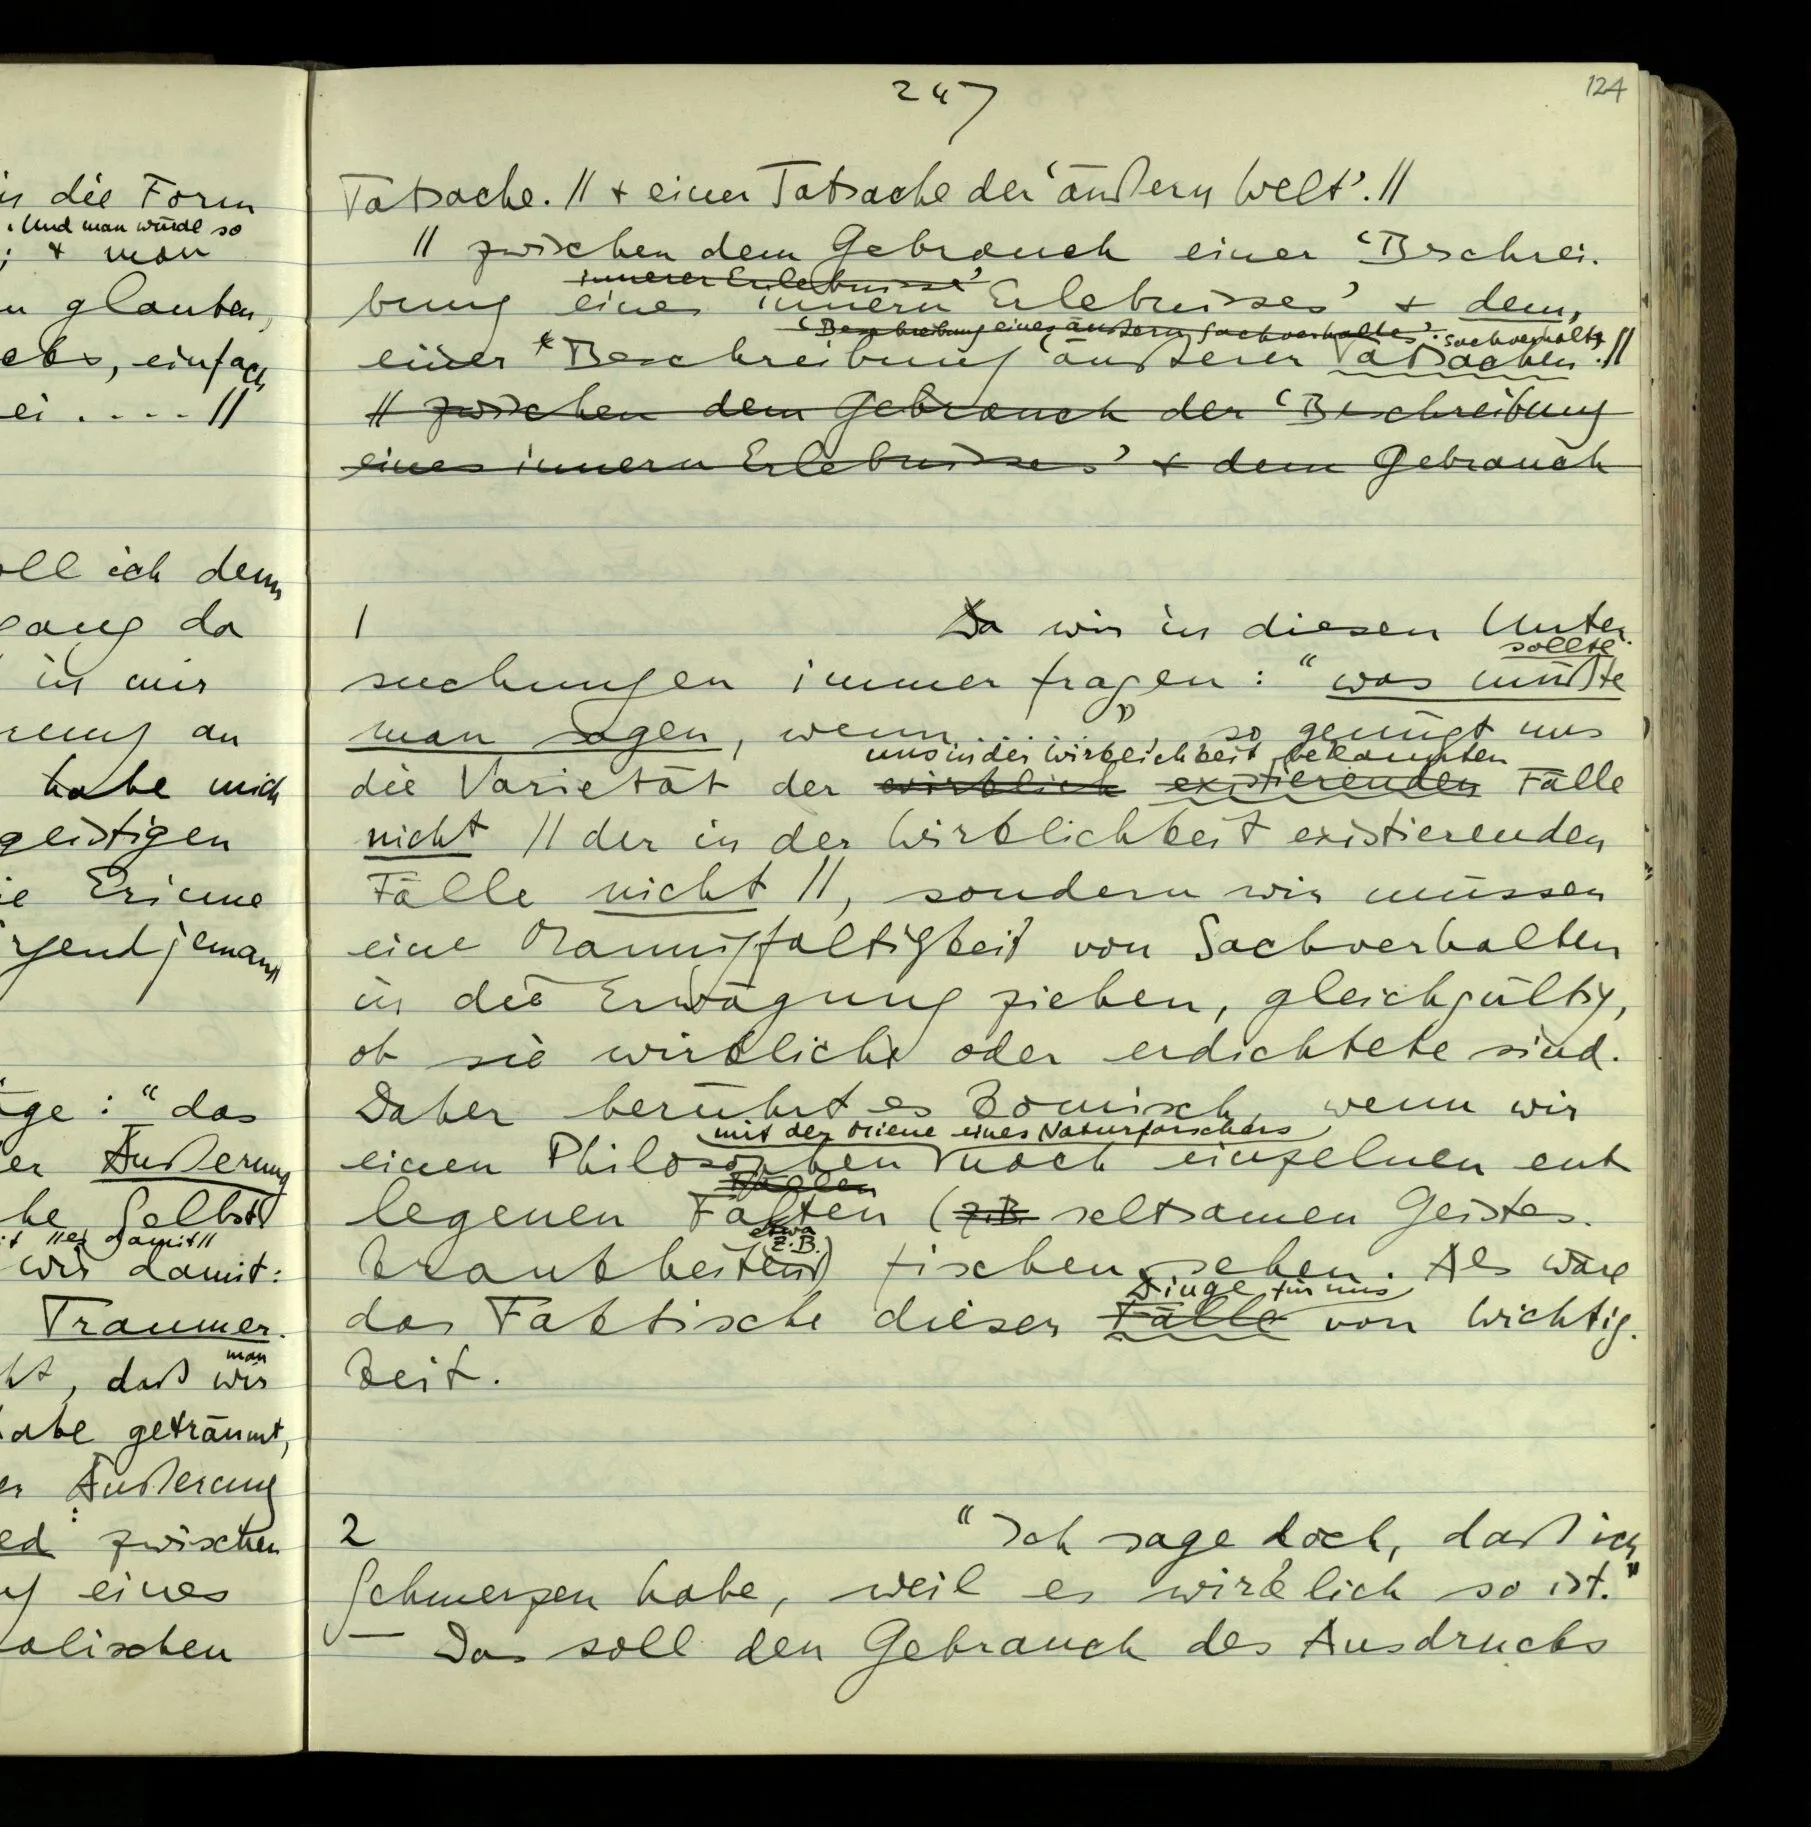 is die Form
. Und man würde so
; + man
n glauben,
ebs, einfach
ei . - - - //
oll ich denn
gang da
in mir
rung an
habe mich
geistigen
ie Erinne
rgend jemand
äge : “das
er Äußerung
he selbst
it //es damit//
wir damit:
Traumer-
man
ht, daß wir
habe geträumt,
er Äußerung
ed zwischen
g eines
alischen
247
124
Tatsache. // + einer Tatsache der ‘äußern Welt’. //
// zwischen dem Gebrauch einer ‘Beschrei-
innerer Erlebnisse’
bung eines innern Erlebnisses’ + dem,
‘Beschreibung eines äußern Sachverhaltes’. Sachverhalte
einer ‘Beschreibung äußerer Tatsachen.’ //
// zwischen dem Gebrauch der ‘Beschreibung
eines innern Erlebnisses’ + dem Gebrauch
1 Da wir in diesen Unter-
sollte
suchungen immer fragen : “was müßte
man sagen, wenn . . . . .”, so genügt uns
uns in der Wirklichkeit bekannten
die Varietät der wirklich existierenden Fälle
nicht // der in der Wirklichkeit existierenden
Fälle nicht //, sondern wir müssen
eine Mannigfaltigkeit von Sachverhalten
in die Erwägung ziehen, gleichgültig,
ob sie wirkliche oder erdichtete sind.
Daher berührt es komisch, wenn wir
mit der Miene eines Naturforschers
einen Philosophen nach einzelnen ent-
legenen Fakten (z.B. seltsamen Geistes-
etwa
z.B.
krankheiten) fischen sehen. Als wäre
Dinge für uns
das Faktische dieser Fälle von Wichtig-
keit.
2 “Ich sage doch, daß ich
Schmerzen habe, weil es wirklich so ist.”
— Das soll den Gebrauch des Ausdrucks